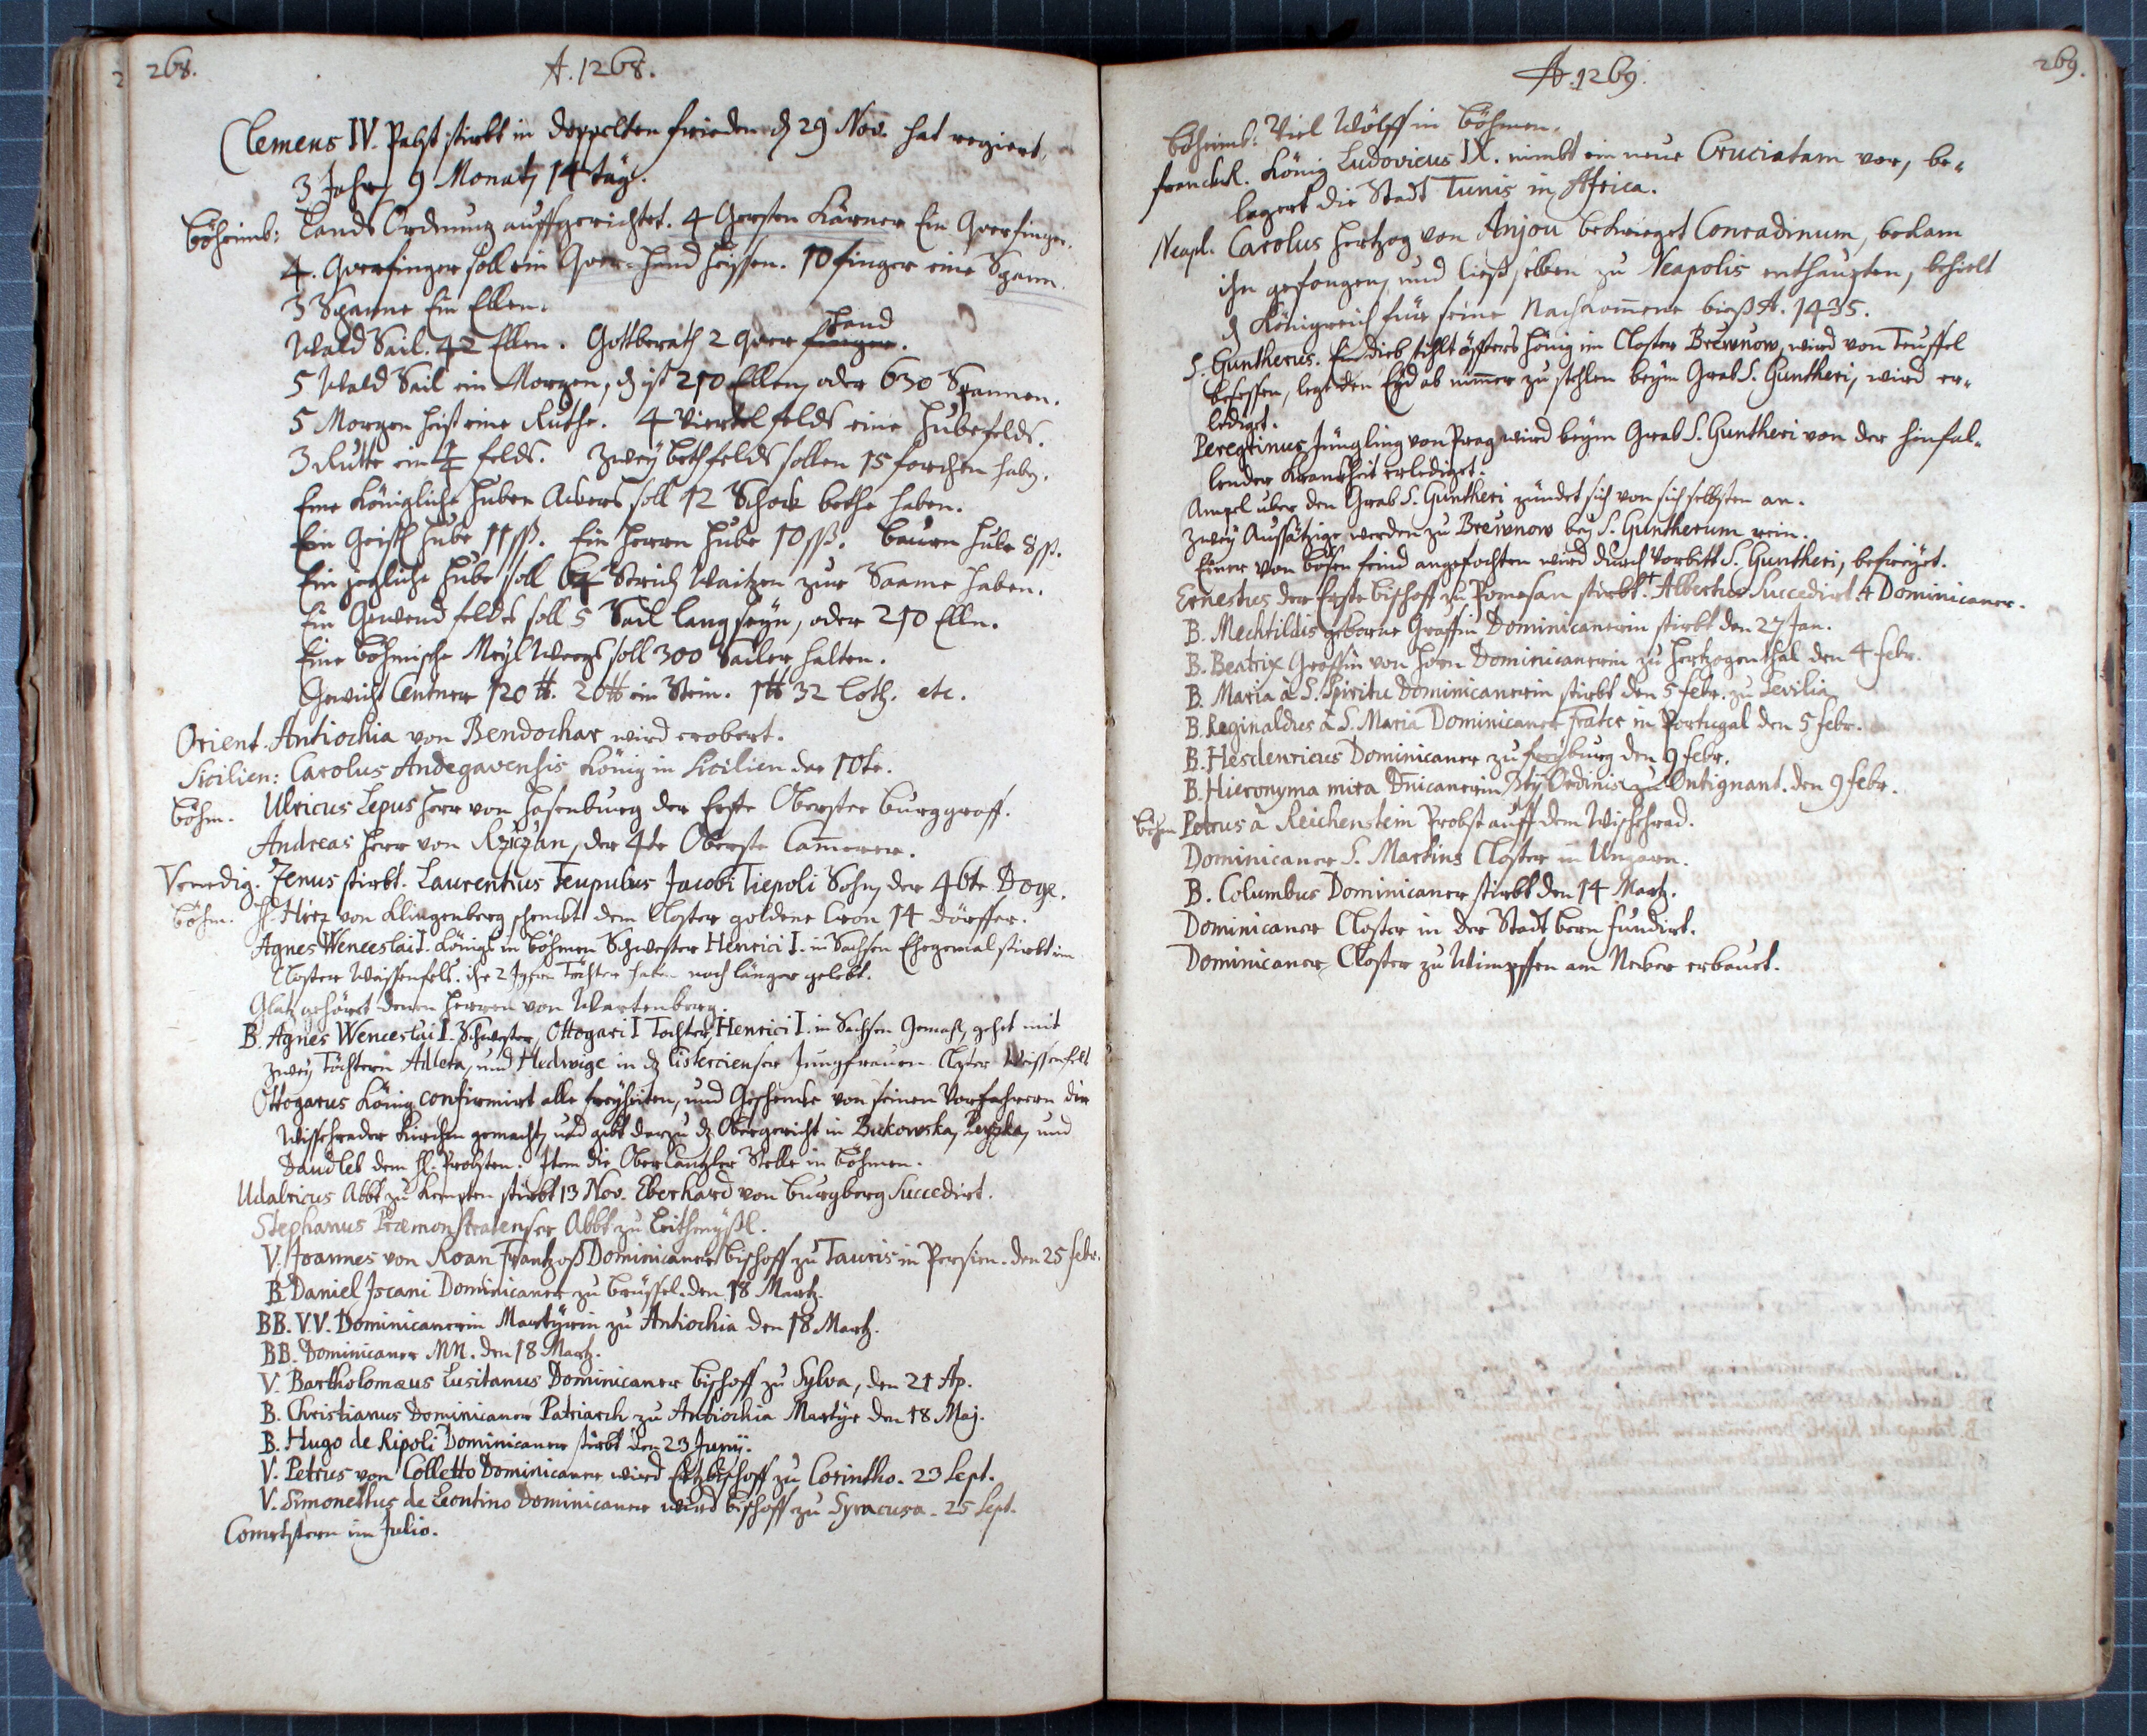 268.
A. 1268.
Clemens IV. Pabst stirbt in doppelten frieden den 29 Nov. hat regiert,
3 Jahr, 9 Monat, 14 täg.
Böheimb: Lands Ordnung auffgerichtet. 4 Gersten Kärner Ein Querfinger.
4. Querfinger soll ein Quer-Hand heissen. 10 finger eine Spann.
3 Spanne Ein Ellen.
Wald Sail. 42 Ellen. 2 Quer finger. Hand
5 Wald Sail ein Morgen, dz ist 210 Ellen, oder 630 Spannen.
5 Morgen heist eine Ruthe. 4 Viertel felds eine Hubefelds.
3 Rutte ein 1/4 felds. Zwey bethfelds sollen 15 forchen habn.
Eine Königliche Huben Ackers soll 12 Schock bethe haben.
Ein Geistl Hube 11 ßß. Ein Herrn Hube 10 ßß. Bauern Hube 8 ßß.
Ein jegliche Hube soll 64 Strich Waitzen zur Saame haben.
Ein Gewend feldes soll 5 Sail lang seyn, oder 210 Elln.
Eine Böhmische Meyl Weegs soll 300 Sailer halten.
Gewicht Centner 120 ℔. 20 ℔ ein Stein. 1 ℔ 32 Loth. etc.
Orient. Antiochia von Bendochar wird erobert.
Sicilien: Carolus Andegavensis König in Sicilien der 10te.
Böhm. Ulricus Lepus Herr von Hasenburg der Erste Oberster Burggraff.
Andreas Herr von Rziczan, der 4te Oberste Cam̄erer.
Venedig. Zenus stirbt. Laurentius Teupulus Jacobi Tiepoli Sohn, der 46te Doge.
Böhm. H. Hirz von Klingenberg schenckt dem Closter goldene Cron 14 dörffer.
Agnes Wenceslai I. Königs in Böhmen Schwester Henrici I. in Sachsen Ehegemal stirbt im
Closter Waissenfels. ihre 2 Töchter haben noch länger gelebt.
Glatz gehöret denen Herren von Wartenberg.
B. Agnes Wenceslai I. Schwester, Ottogari I Tochter, Henrici I. in Sachsen Gemahl, gehet mit
zwey Töchtern Adleta, und Hedwige in dz Cistercienser Jungfrauen Closter Weissenfelß
Ottogarus König confirmirt alle freyheiten, und Geschencke von seinen Vorfahrern der
Wissehrader Kirchen gemacht, und gibt darzu dz Obergericht in Bukowska, und
Daudleb dem H. Probsten. Item die Obercantzler Stelle in Böhmen.
Udalricus Abbt zu Kempten stirbt 13 Nov. Eberhard von Burgberg Succedirt.
Stephanus Præmonstratenser Abbt zu Leithmyßl.
V. Joannes von Roan Frantzoß Dominicaner Bischoff zu Tauris in Persien. den 25 febr.
B. Daniel Iscani Dominicaner zu Brüssel. den 18 Martz.
BB. V.V. Dominicanerin Martyrin zu Antiochia den 18 Martz.
BB. Dominicaner MM. den 18 Martz.
V. Bartholomæus Lusitanus Dominicaner Bischoff zu Sylva, den 21 Ap.
B. Christianus Dominicaner Patriarch zu Antiochia Martyr den 18 Maj.
B. Hugo de Ripoli Dominicaner stirbt den 23 Junij.
V. Petrus von Colletto Dominicaner wird Ertzbischoff zu Corintho. 23 Sept.
V. Simonettus de Leontino Dominicaner wird Bischoff zu Syracusa. 25 Sept.
Cometstern im Julio.
A. 1269.
269.
Böheimb: Viel Wölff in Böhmen.
Franckr. König Ludovicus IX. nimbt ein neue Cruciatam vor, be-
lagert die Stadt Tunis in Africa.
Neapl. Carolus Hertzog von Anjou bekrieget Conradinum, bekam
ihn gefangen, und liest selben zu Neapolis enthaupten, behielt
dz Königreich für seine Nachkom̄ene bieß A. 1435.
S. Guntherus. Ein dieb stihlt öffters Hönig im Closter Brewnow, wird von Teuffel
besessen, legt den Eyd ab nimmer zu stehlen beym Grab S. Guntheri, wird er-
lediget.
Peregrinus Jüngling von Prag wird beym Grab S. Guntheri von der hinfal-
lender Kranckheit erlediget.
Ampel uber den Grab S. Guntheri zündet sich von sich selbsten an.
Zwey Aussätzige werden zu Brewnow bey S. Guntherum rein.
Einer von bösen feind angefochten wird durch Vorbitt S. Guntheri, befreyet.
Ernestus der Erste Bischoff zu Pomesan stirbt. Albertus Succedirt. Dominicaner.
B. Mechtildis geborne Graffin Dominicanerin stirbt den 27 Jan.
B. Beatrix Graffin von Horn Dominicanerin zu Hertzogenthal den 4 febr.
B. Maria à S. Spiritu Dominicanerin stirbt den 5 febr. zu Sevilia
B. Reginaldus à S. Maria Dominicaner Frater in Portugal den 5 febr.
B. Hesdenricus Dominicaner zu Freyburg den 9 febr.
B. Hieronyma mira Dnicanerin 3tij Ordinis zu Ontignant. den 9 febr.
Böhm Petrus à Reichenstein Probst auff dem Wischehrad.
Dominicaner S. Martins Closter in Ungarn.
B. Columbus Dominicaner stirbt den 14 Martz.
Dominicaner Closter in der Stadt Bern fundirt.
Dominicaner Closter zu Wimpffen am Neker erbauet.